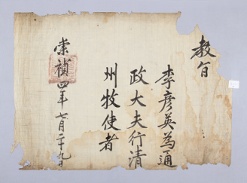 教旨
李彦英為通
政大夫行清
州牧使者
崇禎四年七月二十九日